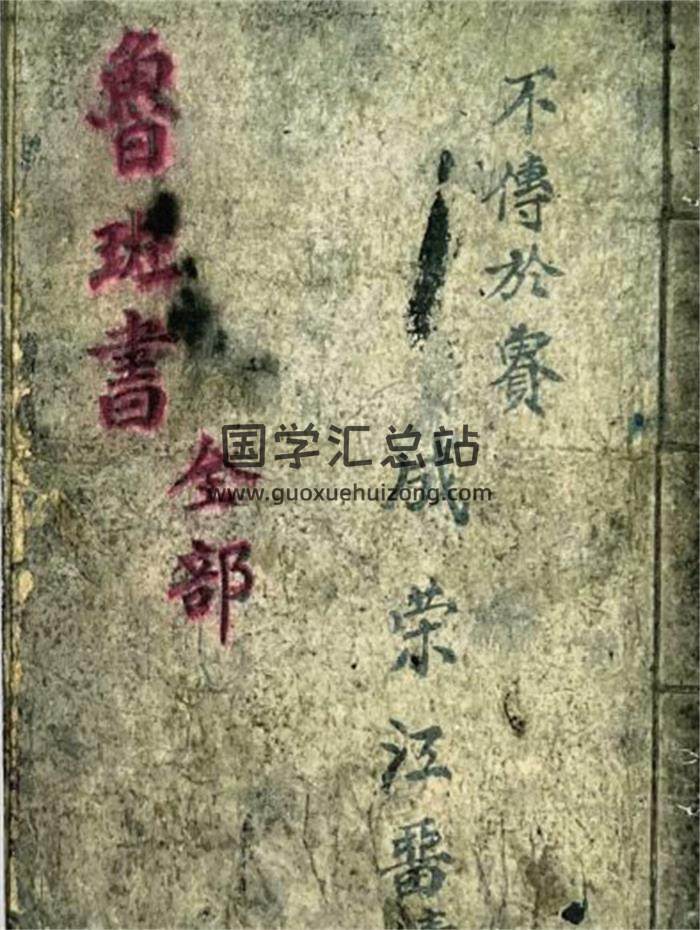 不傳於賽
荣江
魯班書
全部
国学汇总站
www.guoxuehuizong.com